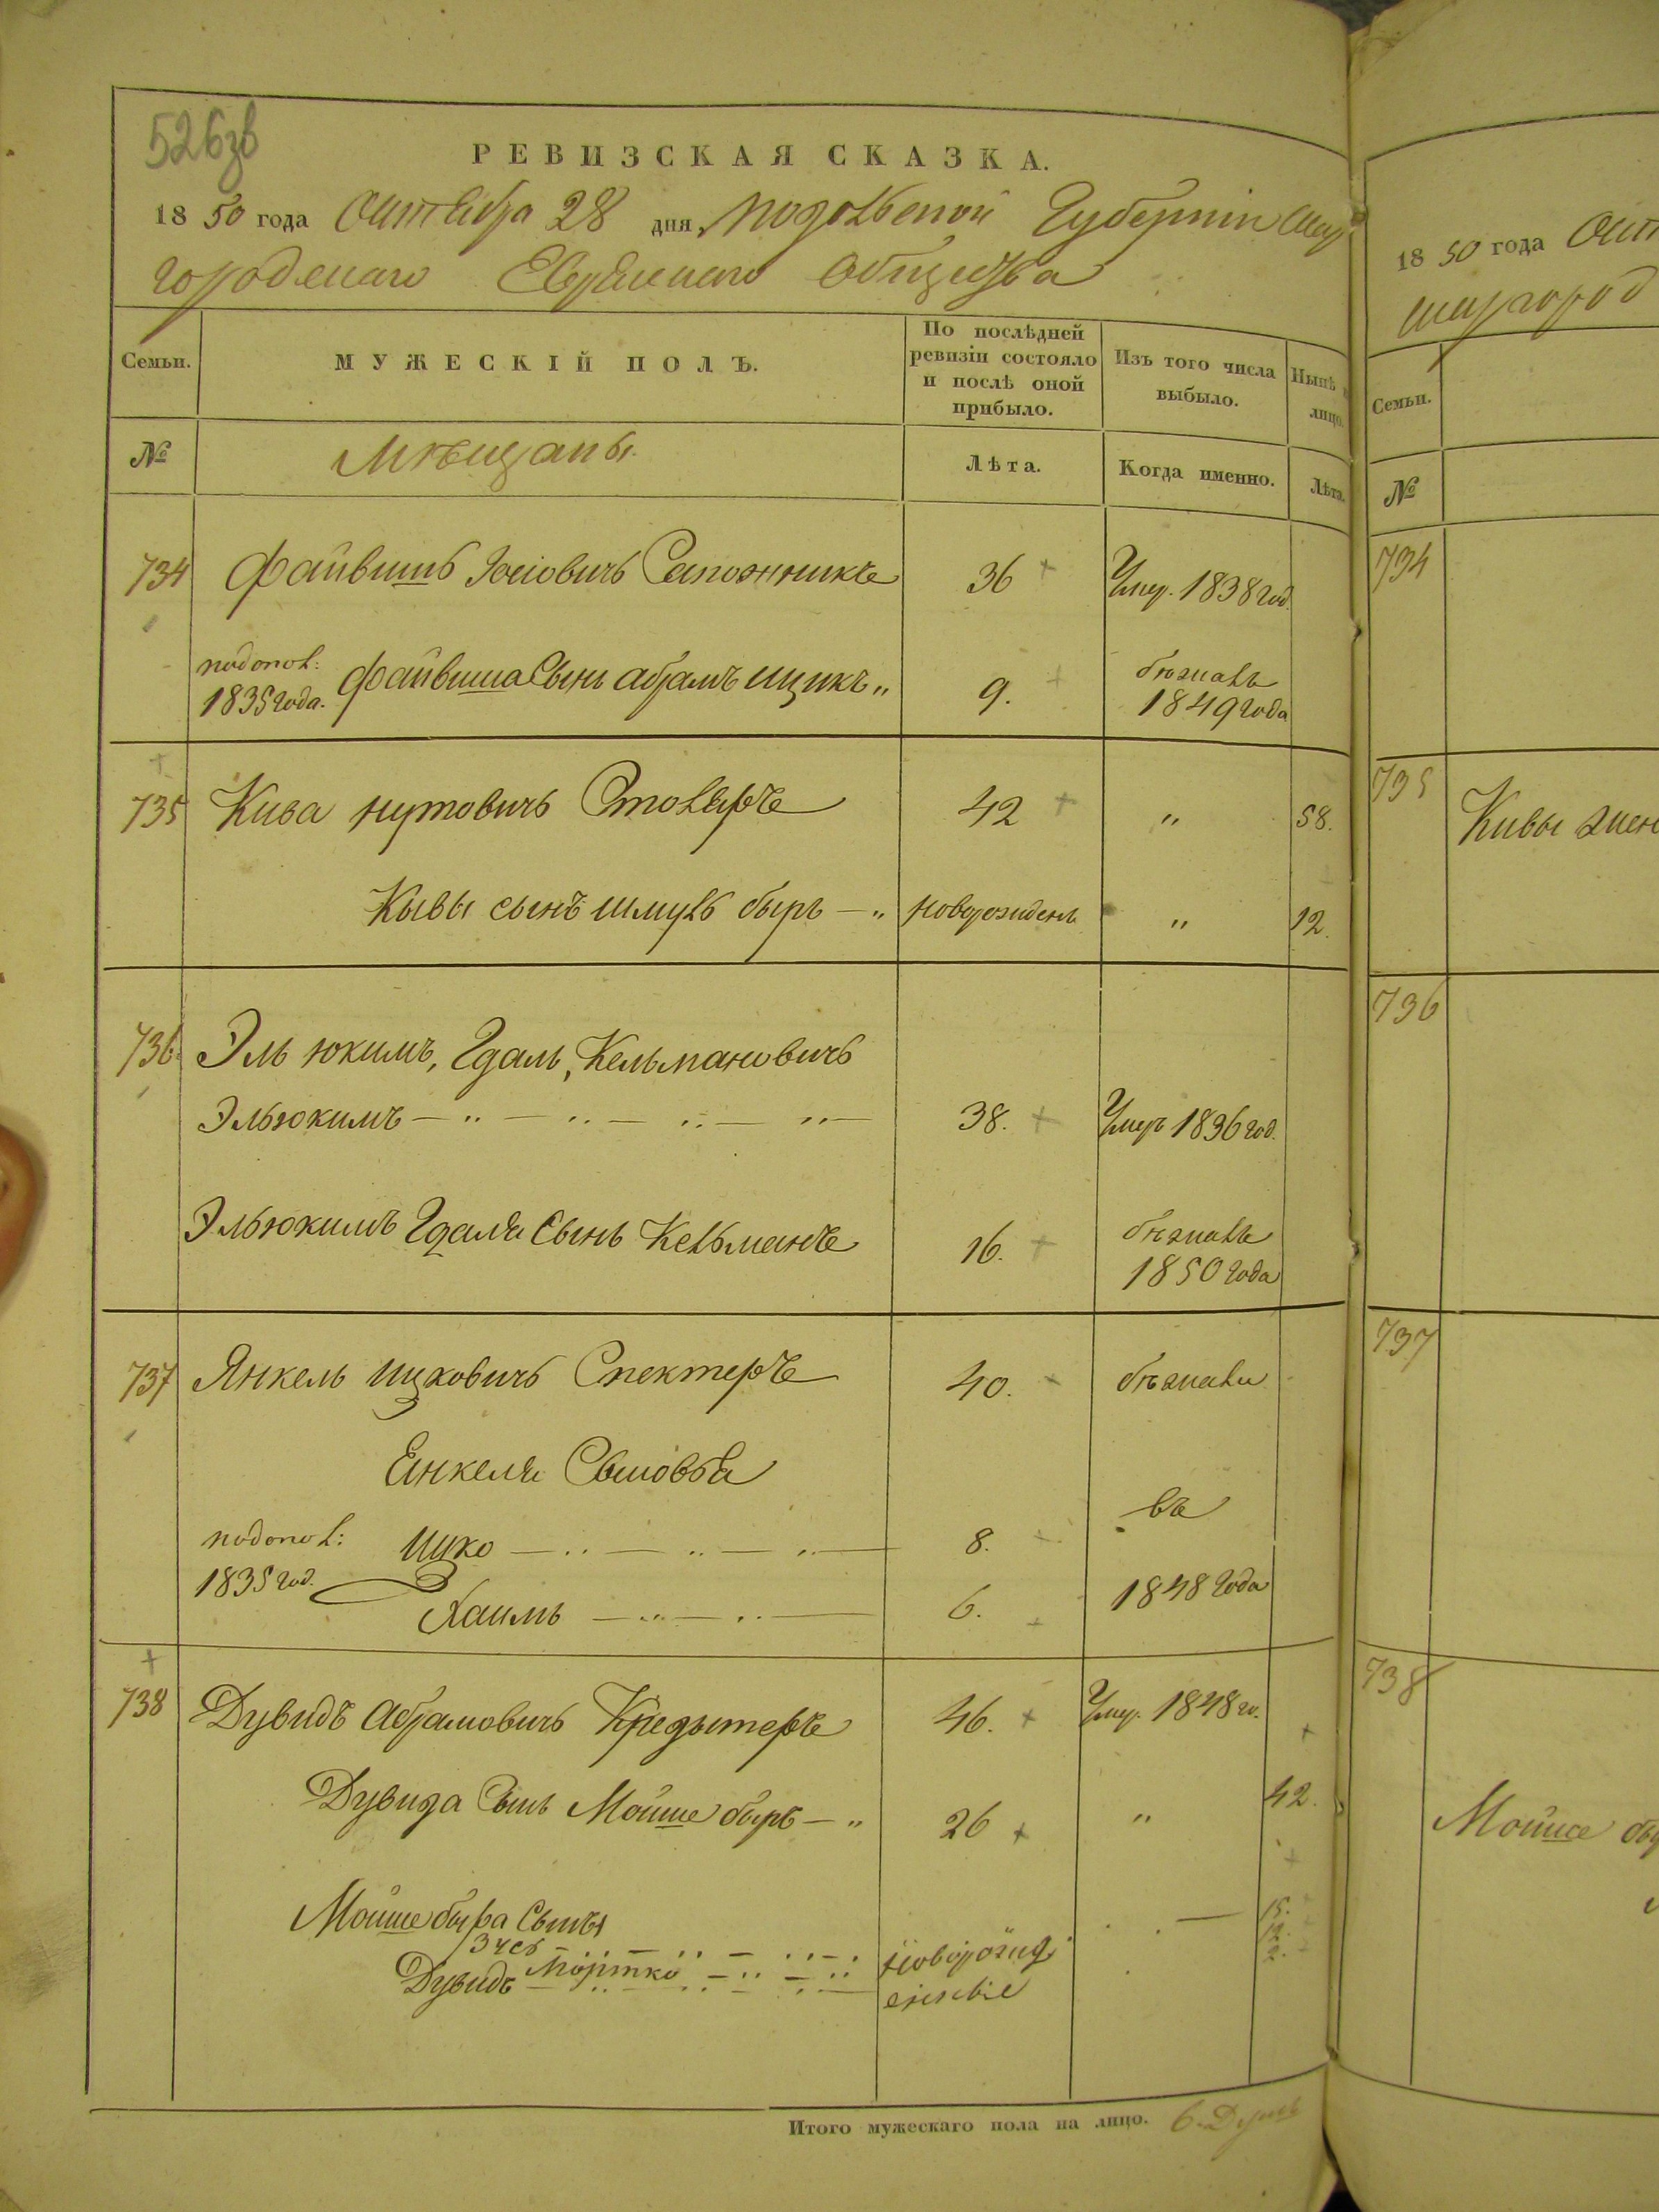 526зв
РЕВИЗСКАЯ СКАЗКА.
1850 года Октября 28 дня, Подольской Губерніи Шар
городскаго Еврейскаго Общества
Семьи.
МУЖЕСКІЙ ПОЛЪ.
По послѣдней ревизіи состояло и послѣ оной прибыло.
Изъ того числа выбыло.
Нынѣ
лицо.
№
Мѣщаны.
Лѣта.
Когда именно.
Лѣта.
734 Файвишъ Іосіовичъ Сапожникъ 36 Умер. 1838 год.
подопол: 1835 года. Файвиша Сынъ Абрамъ Ицикъ „ 9. бѣжалъ 1849 года
735 Кива Нутовичъ Столяръ 42 „ 58.
Кывы сынъ Шмуль быръ — „ новорожденъ „ 12.
736. Эль юкимъ, Гдаль, Кельмановичъ
Эльюкимъ — „ — „ — „ — „ — 38. Умеръ 1836 год.
Эльюкимъ Гдаля Сынъ Кельманъ 16. бѣжалъ 1850 года
737 Янкель Ицковичъ Спектеръ 40. бѣжали
Енкеля Сыновья въ
подопол: Ицко — „ — „ — „ — 8.
1835 год. Хаимъ — „ — „ — 6. 1848 года
738 Дувидъ Абрамовичъ Кредытеръ 46. Умер. 1848 го.
Дувида Сынъ Мойше бырь — „ 26 „ 42.
Мойше быра Сыны 15.
Зусь — „ — „ — „ — новорожд 12.
Мортко — „ — „ 2.
Дувидъ — „ — „ — „ — енные
Итого мужескаго пола на лицо. 6. Душъ
1850 года Окт
шаргород
Семьи.
№
734
735 Кивы жен
736
737
738
Мойше бы